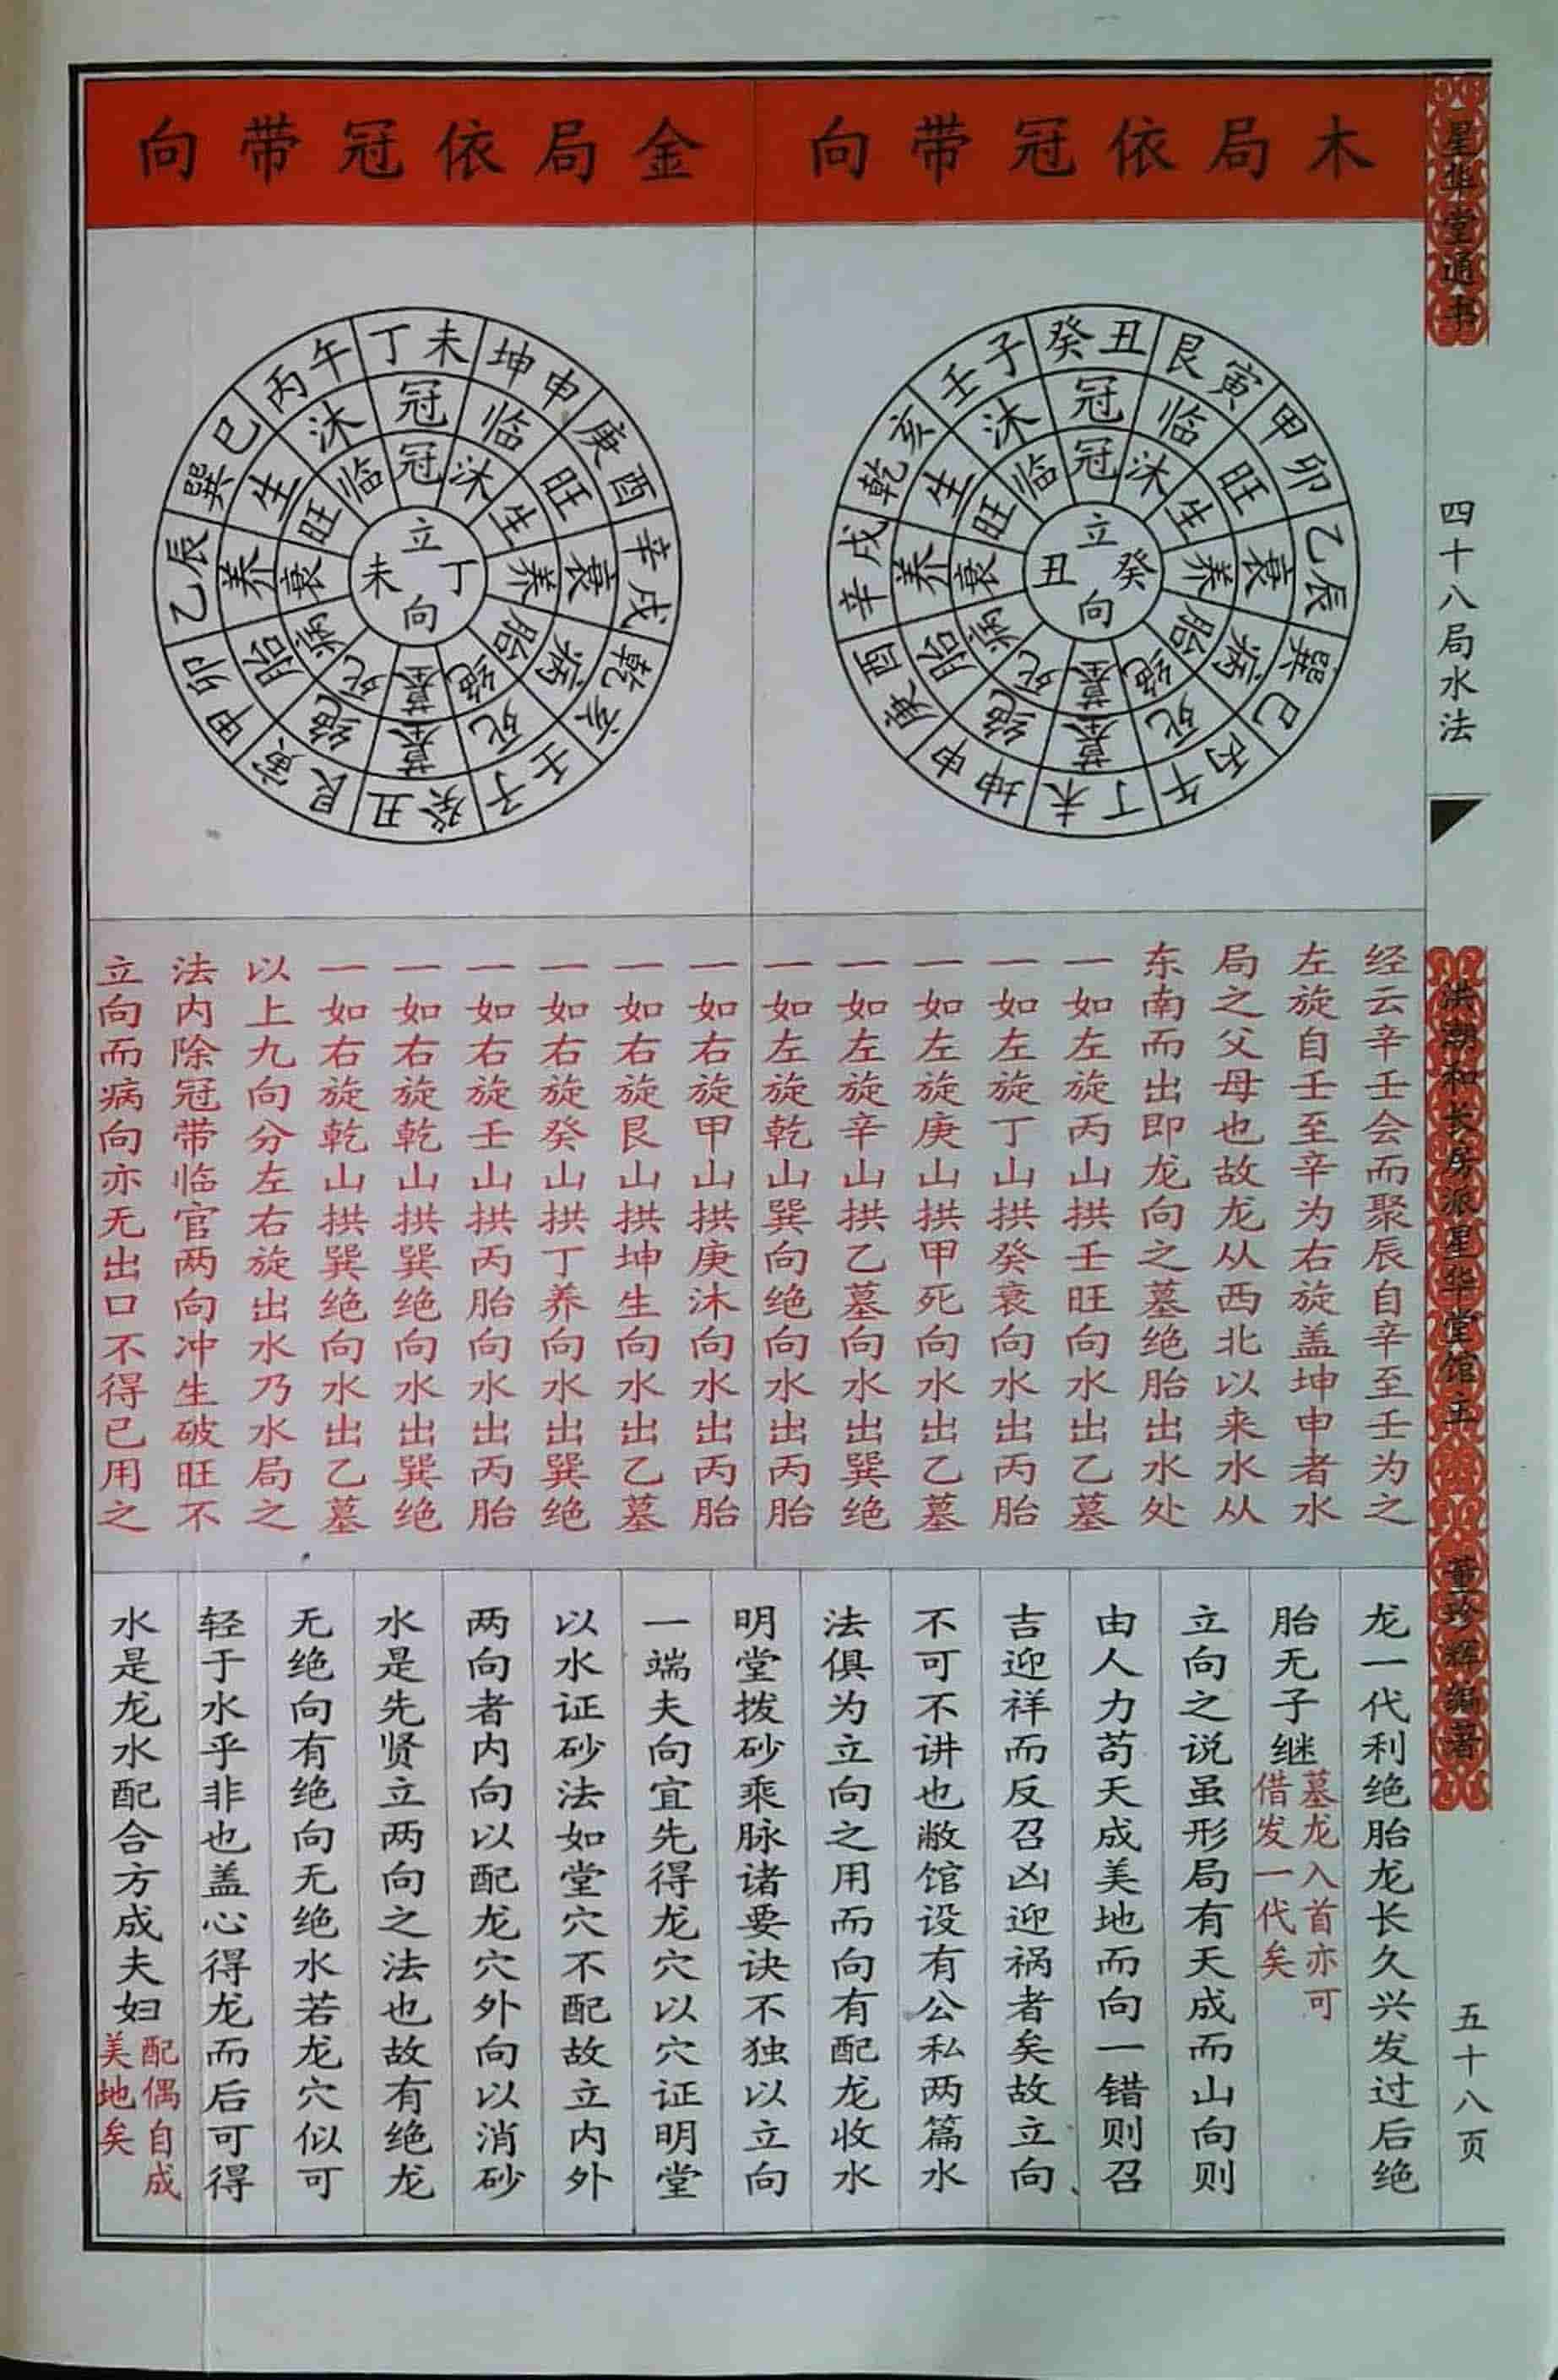 星华堂通书
四十八局水法
洪潮和长房派星华堂馆主
董珍辉编著
五十八页
木局依冠带向
金局依冠带向
癸丑
艮寅
甲卯
乙辰
巽巳
丙午
丁未
坤申
庚酉
辛戌
乾亥
壬子
冠临旺衰病死墓绝胎养生沐
冠沐生养胎绝墓死病衰旺临
立癸向丑
丁未
坤申
庚酉
辛戌
乾亥
壬子
癸丑
艮寅
甲卯
乙辰
巽巳
丙午
冠临旺衰病死墓绝胎养生沐
冠沐生养胎绝墓死病衰旺临
立丁向未
经云辛壬会而聚辰自辛至壬为之
左旋自壬至辛为右旋盖坤申者水
局之父母也故龙从西北以来水从
东南而出即龙向之墓绝胎出水处
一如左旋丙山拱壬旺向水出乙墓
一如左旋丁山拱癸衰向水出丙胎
一如左旋庚山拱甲死向水出乙墓
一如左旋辛山拱乙墓向水出巽绝
一如左旋乾山拱巽向绝向水出丙胎
一如右旋甲山拱庚沐向水出丙胎
一如右旋艮山拱坤生向水出乙墓
一如右旋癸山拱丁养向水出巽绝
一如右旋壬山拱丙胎向水出丙胎
一如右旋乾山拱巽绝向水出巽绝
一如右旋乾山拱巽绝向水出乙墓
以上九向分左右旋出水乃水局之
法内除冠带临官两向冲生破旺不
立向而病向亦无出口不得已用之
龙一代利绝胎龙长久兴发过后绝
胎无子继墓龙入首亦可借发一代矣
立向之说虽形局有天成而山向则
由人力苟天成美地而向一错则召
吉迎祥而反召凶迎祸者矣故立向、
不可不讲也敝馆设有公私两篇水
法俱为立向之用而向有配龙收水
明堂拨砂乘脉诸要诀不独以立向
一端夫向宜先得龙穴以穴证明堂
以水证砂法如堂穴不配故立内外
两向者内向以配龙穴外向以消砂
水是先贤立两向之法也故有绝龙
无绝向有绝向无绝水若龙穴似可
轻于水乎非也盖心得龙而后可得
水是龙水配合方成夫妇配偶自成美地矣